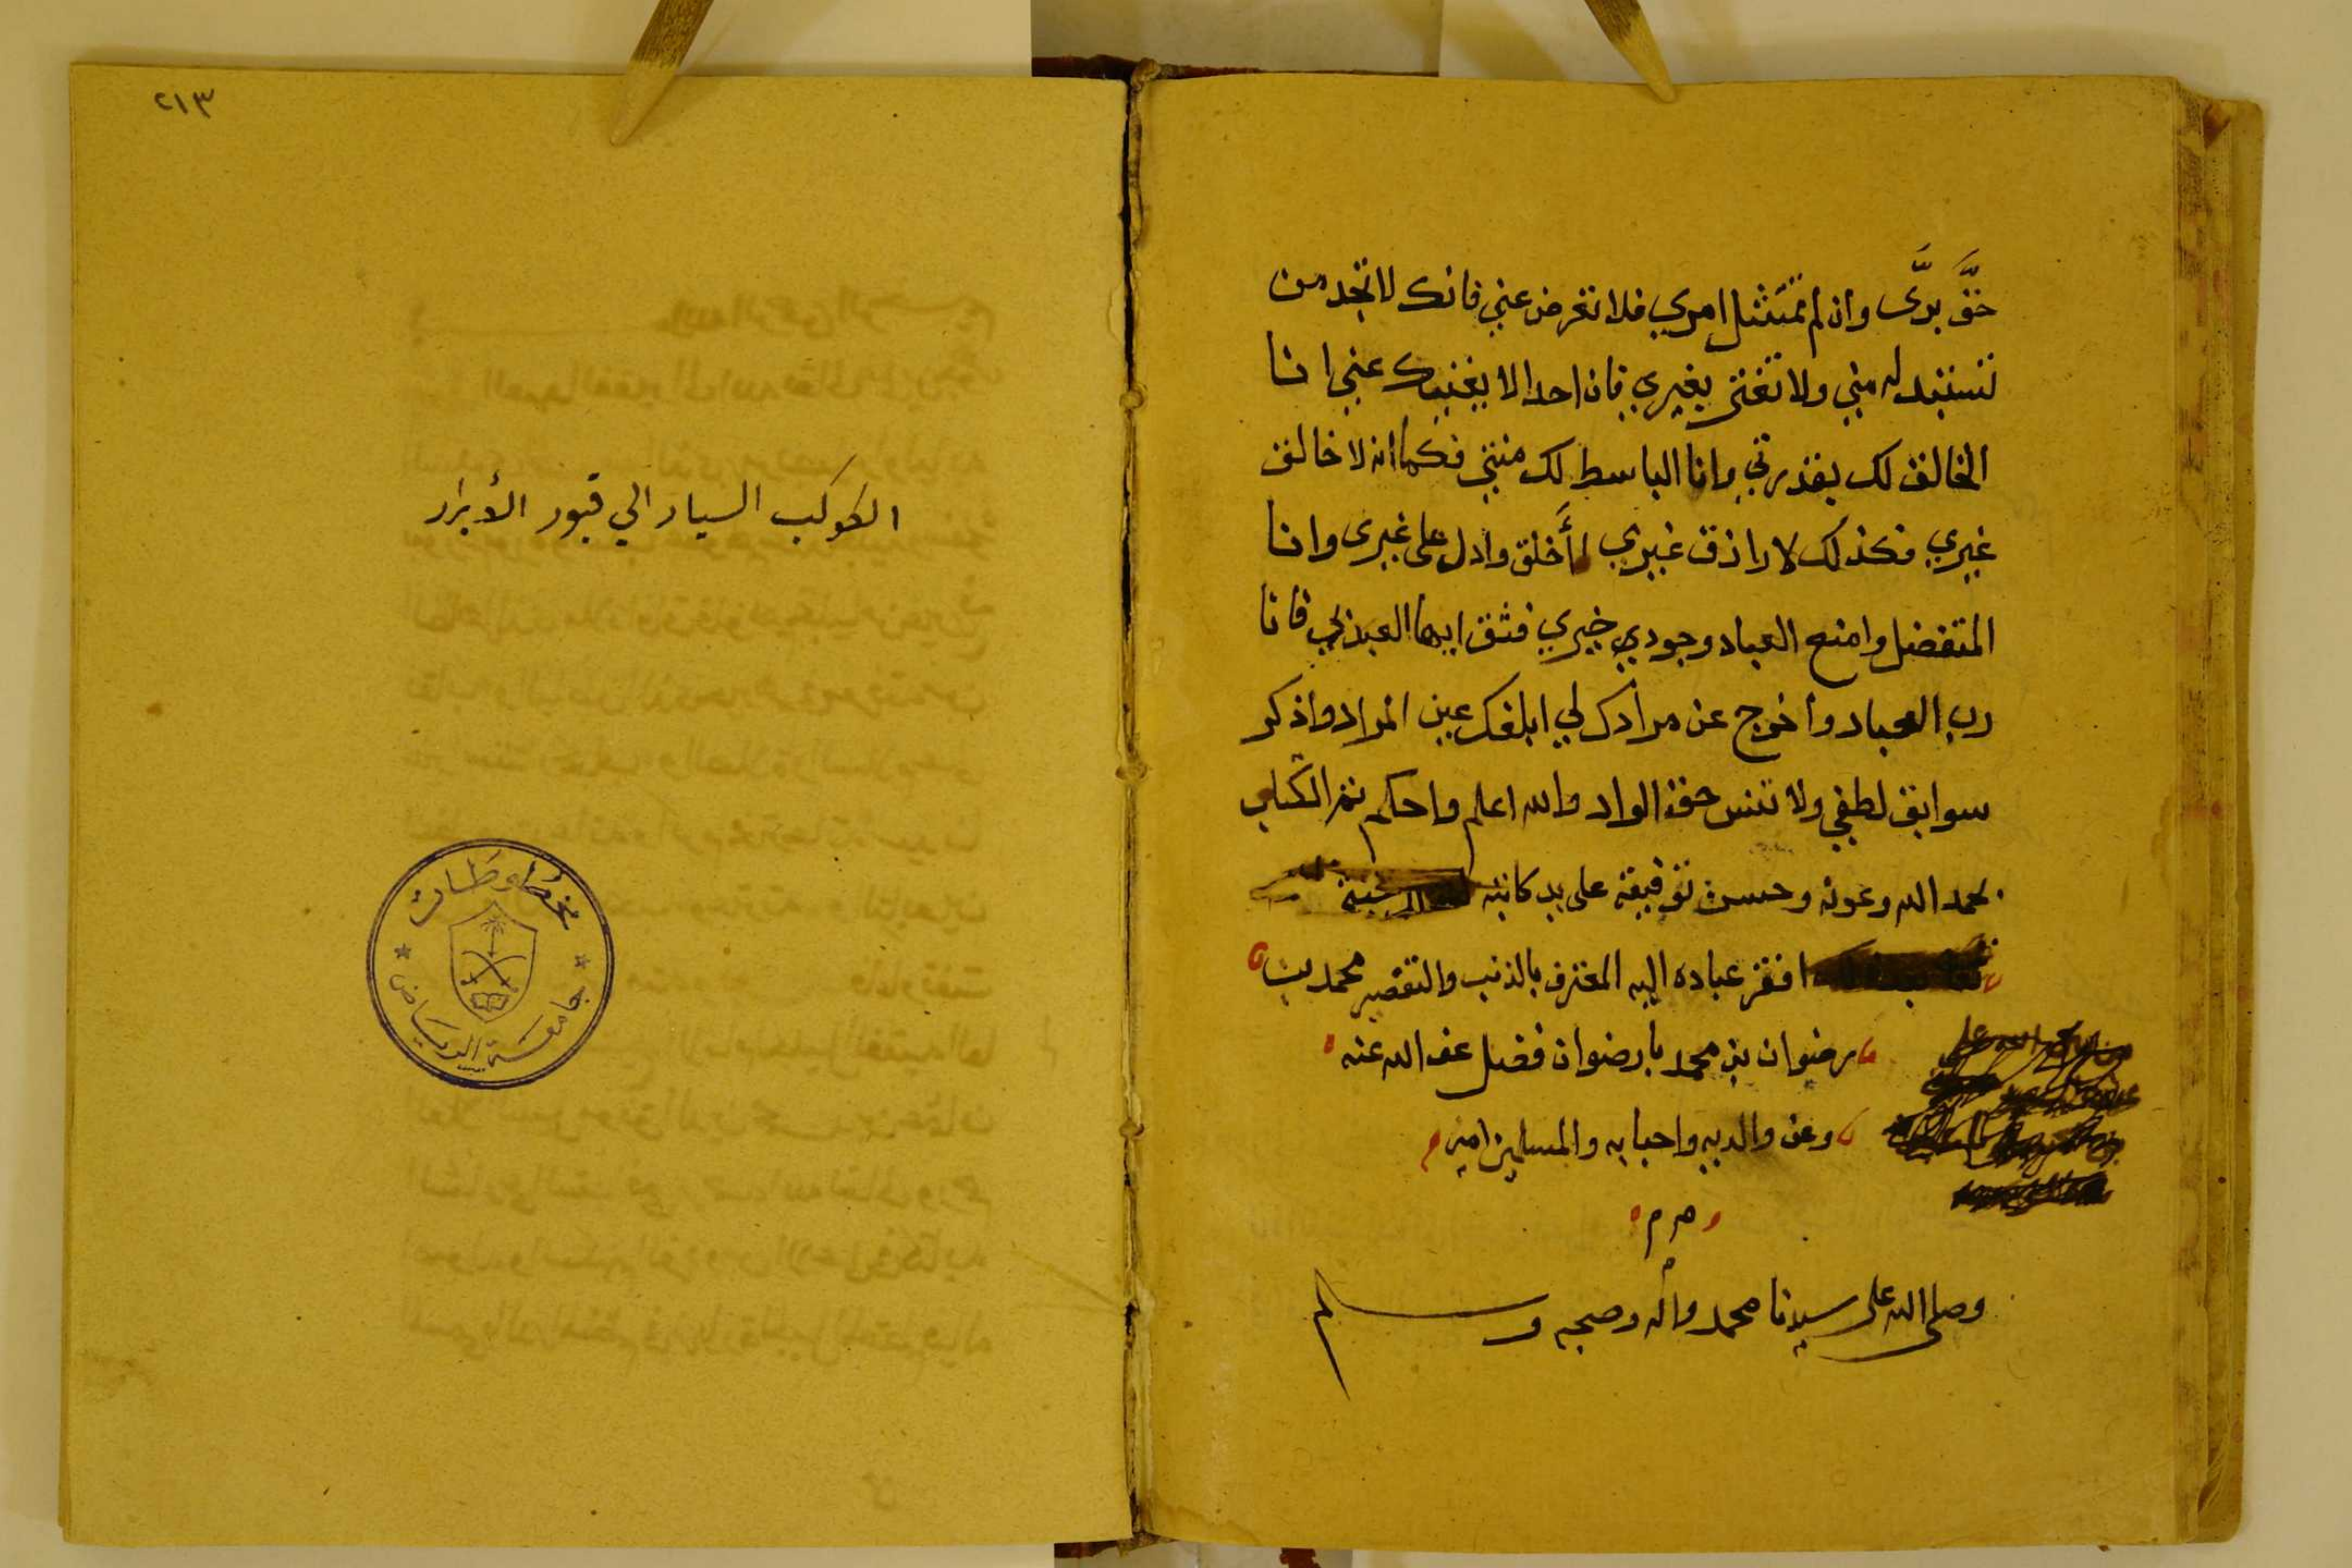 حقَّ برَّى وان لم تمتثل امري فلا تعرض عني فانك لا تجد من
تستبدله مني ولا تغتر بغيري فان احدا لا يغنيك عني انا
الخالق لك بقدرتي وانا الباسط لك منتي فكما انه لا خالق
غيري فكذلك لا رازق غيري أأخلق وادل على غيري وانا
المتفضل وامنع العباد وجودي خيري فثق ايها العبد بي فانا
رب العباد واخرج عن مرادك لي ابلغك عين المراد واذكر
سوابق لطفي ولا تنس حق الواد والله اعلم واحكم تم الكتاب
بحمد الله وعونه وحسن توفيقه على يد كاتبه
افقر عباده اليه المعترف بالذنب والتقصير محمد بن
رضوان بن محمد بارضوان فضل عفى الله عنه
وعن والديه واحبابه والمسلمين امين
م م م
وصلى الله على سيدنا محمد واله وصحبه وسلم
٢١٣
الكوكب السيار الي قبور الأبرار
مخطوطات
جامعة الرياض